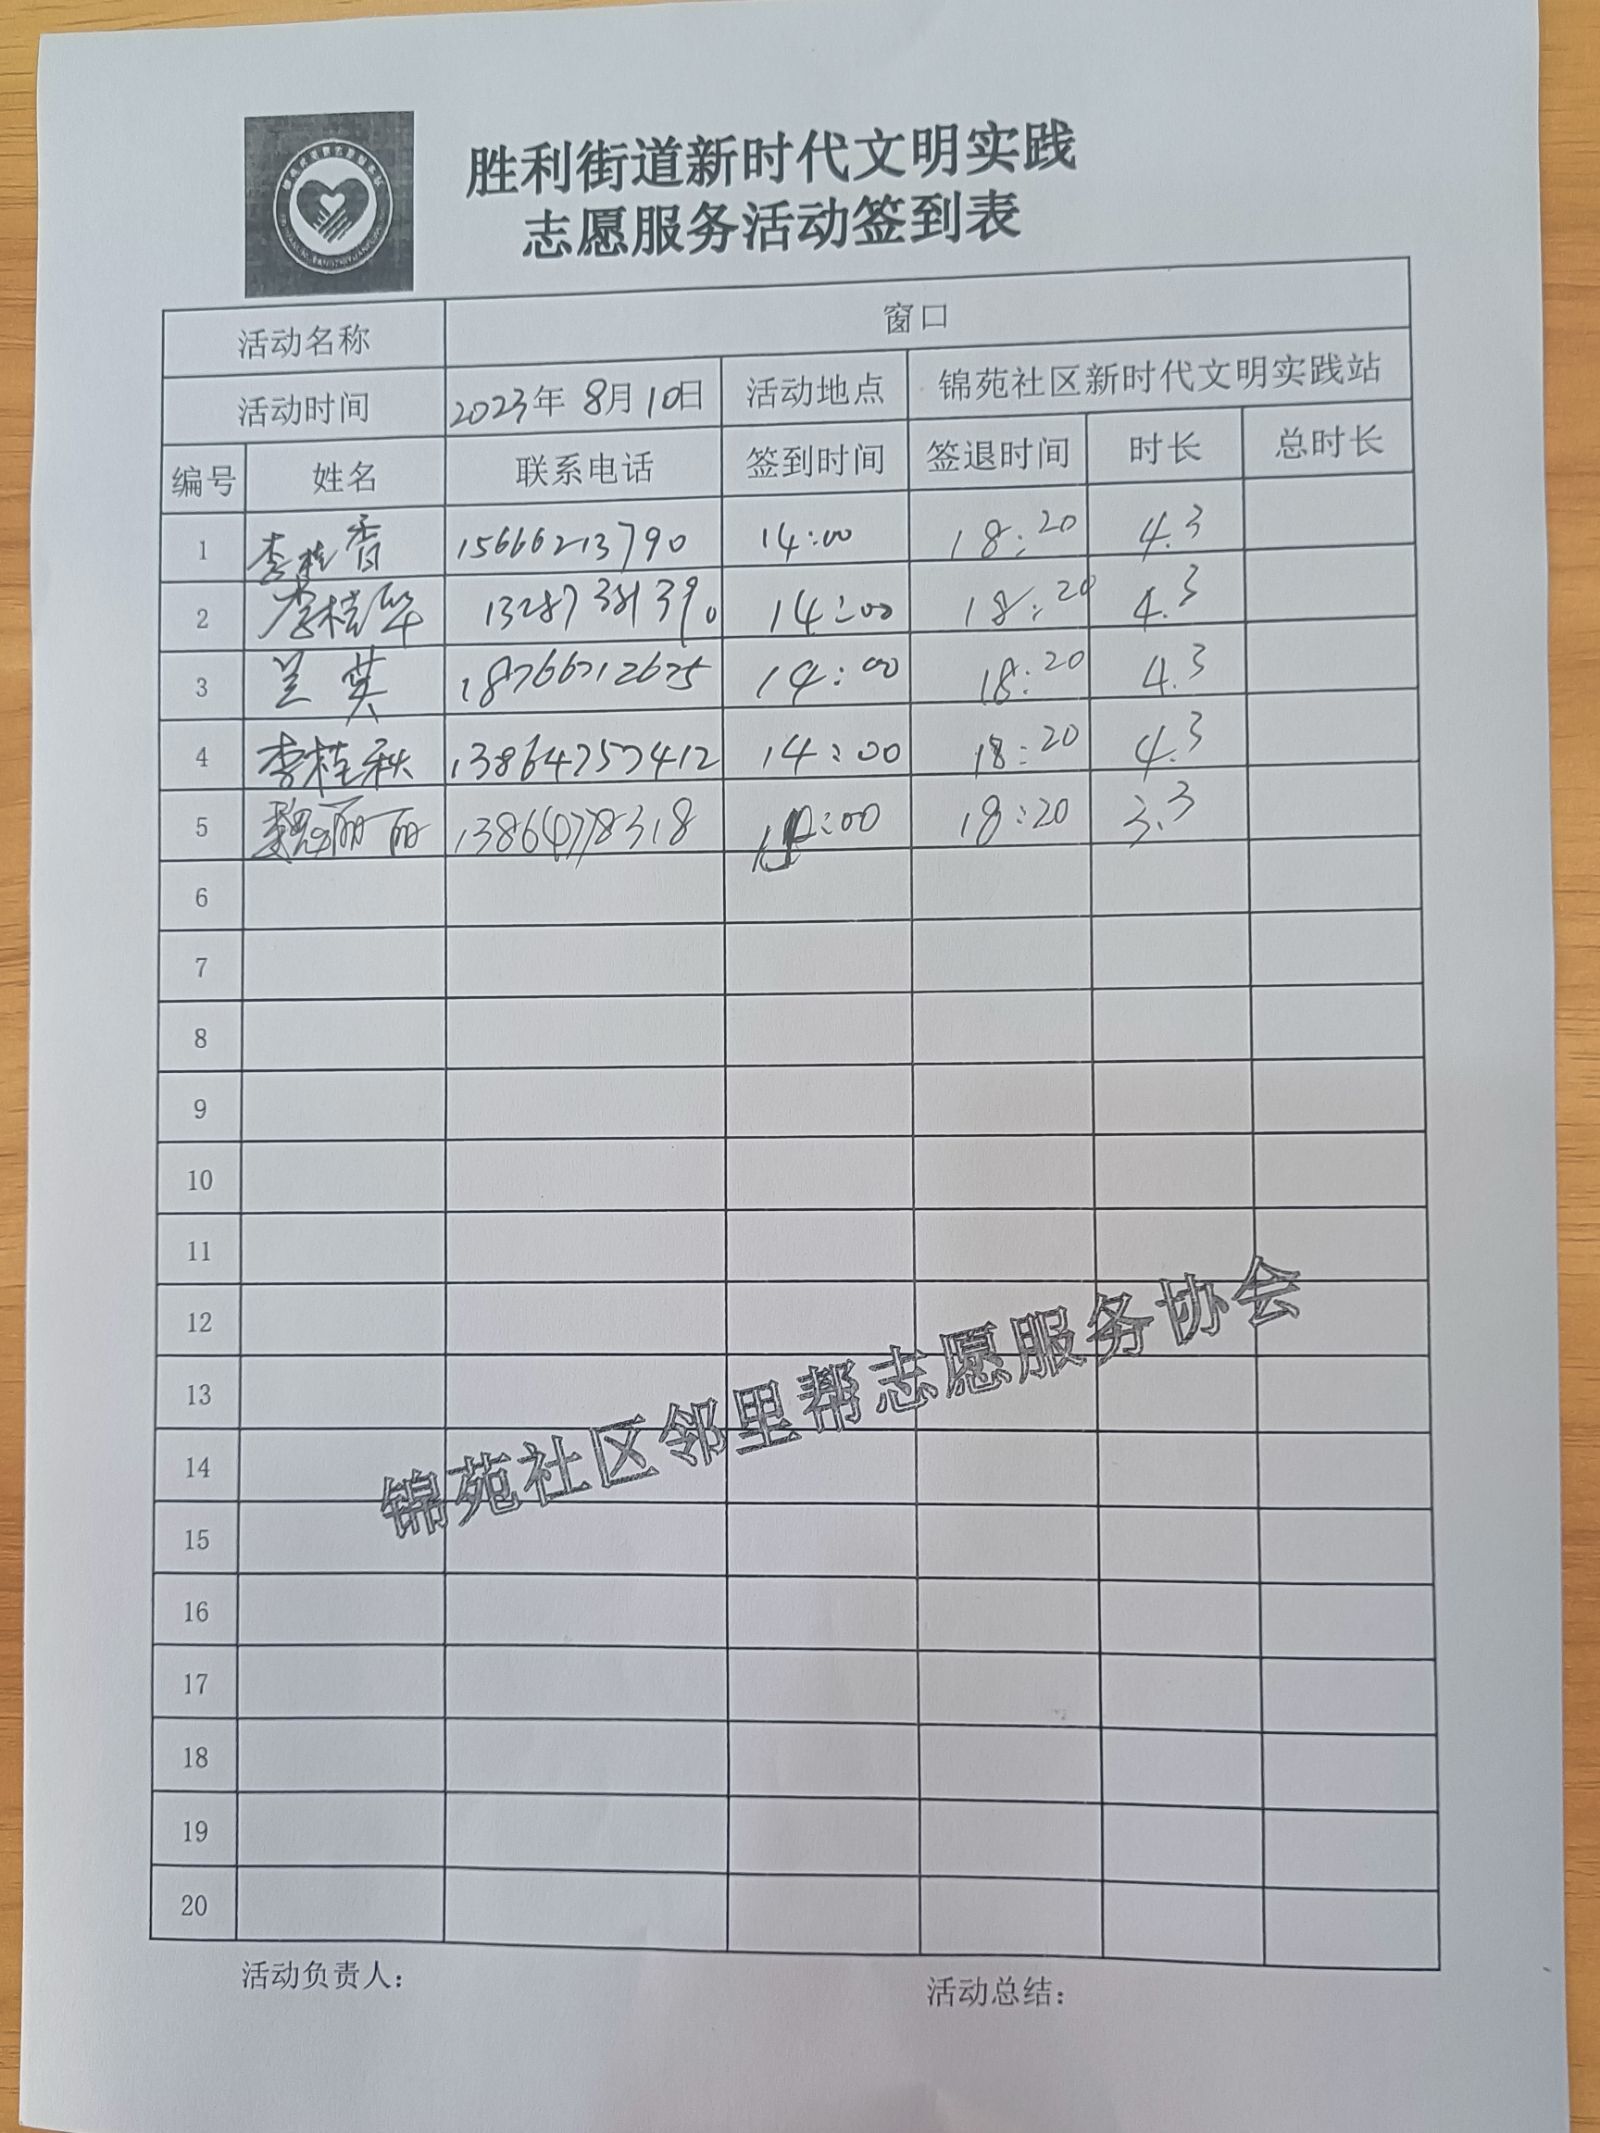 胜利街道新时代文明实践
志愿服务活动签到表
活动名称 窗口
活动时间 2023年 8月10日 活动地点 锦苑社区新时代文明实践站
编号 姓名 联系电话 签到时间 签退时间 时长 总时长
1 李桂香 15666213790 14:00 18:20 4.3
2 李桂华 13287381390 14:00 18:20 4.3
3 兰英 18766712675 14:00 18:20 4.3
4 李桂秋 13864757412 14:00 18:20 4.3
5 魏丽丽 13864778318 :00 18:20 3.3
6
7
8
9
10
11
12
13
14
15
16
17
18
19
20
锦苑社区邻里帮志愿服务协会
活动负责人： 活动总结：